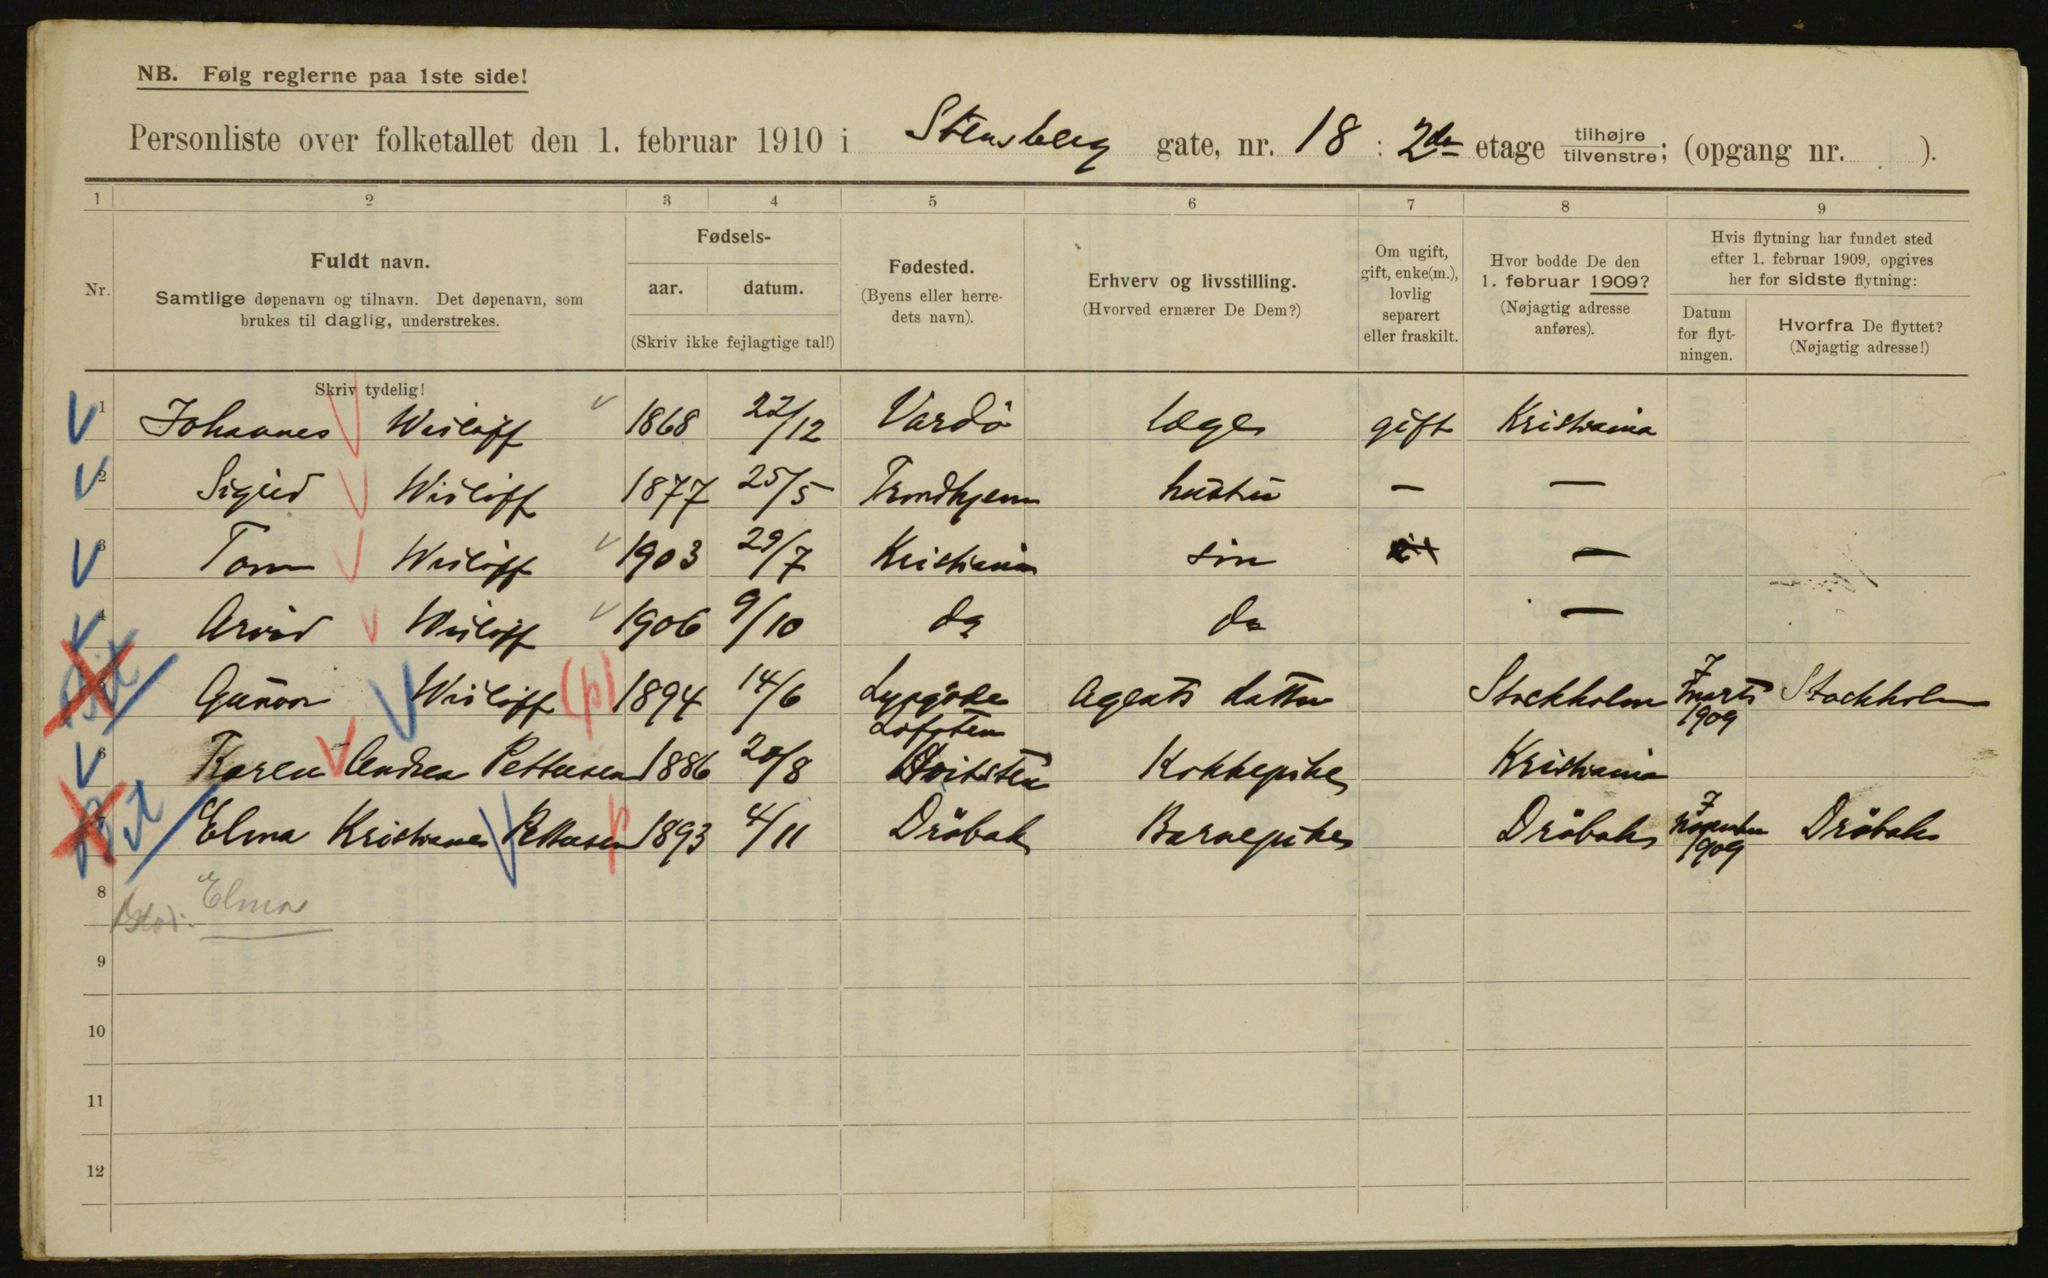 NB. Følg reglerne paa 1ste side!
Personliste over folketallet den 1. februar 1910 i Stensberg gate, nr. 18 : 2den etage tilhøjre tilvenstre; (opgang nr. ).
1 2 3 4 5 6 7 8 9
Nr.
Fuldt navn.
Samtlige døpenavn og tilnavn. Det døpenavn, som
brukes til daglig, understrekes.
Fødsels-
aar. datum.
(Skriv ikke fejlagtige tal!)
Fødested.
(Byens eller herre-
dets navn).
Erhverv og livsstilling.
(Hvorved ernærer De Dem?)
Om ugift,
gift, enke(m.),
lovlig
separert
eller fraskilt.
Hvor bodde De den
1. februar 1909?
(Nøjagtig adresse
anføres).
Hvis flytning har fundet sted
efter 1. februar 1909, opgives
her for sidste flytning:
Datum
for flyt-
ningen.
Hvorfra De flyttet?
(Nøjagtig adresse!)
Skriv tydelig!
1 Johannes Wisløff 1868 22/12 Vardö læge gift Kristiania
2 Sigrid Wisløff 1877 25/5 Trondhjem hustru — —
3 Tom Wisløff 1903 29/7 Kristiania sön —
4 Arvid Wisløff 1906 9/10 do do —
Gunvor Wisløff (p) 1894 14/6 Agents datter Stockholm 7 marts 1909 Stockholm
Lofoten
6 Karen Andrea Pettersen 1886 20/8 Hvitsten Kokkepike Kristiania
Elma Kristiane Pettersen p 1893 4/11 Dröbak Barnepike Dröbak 7 November 1909 Dröbak
8 Elma
9
10
11
12